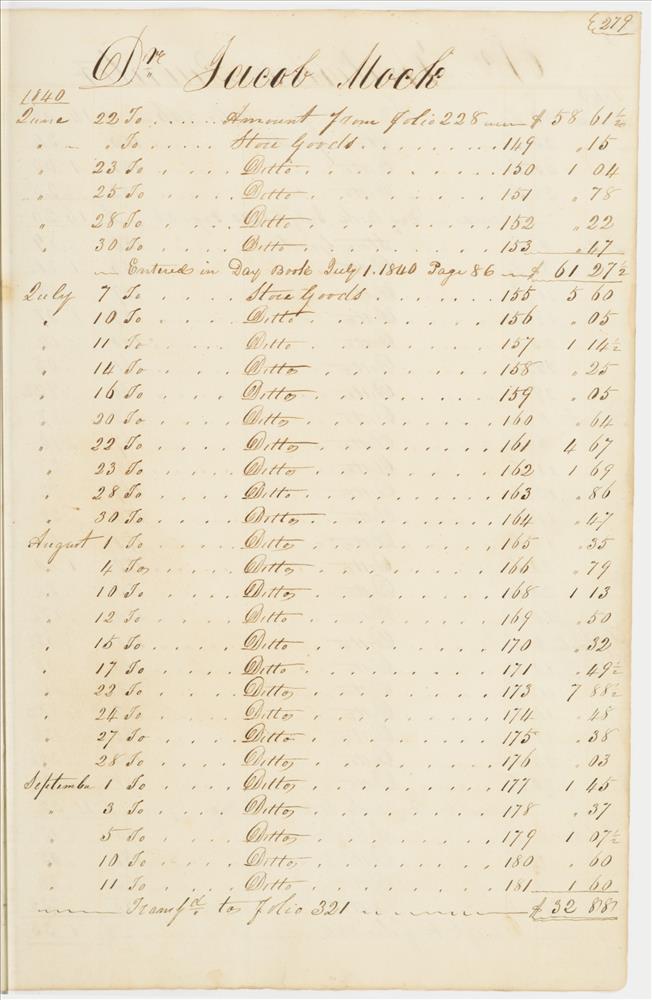 E 279
Dr Jacob Mock
1840
June 22 To ..... Amount from folio 228 — $ 58 61½
" " To ..... Store Goods ........ 149 " 15
" 23 To ..... Ditto ........ 150 1 04
" 25 To ..... Ditto ........ 151 " 78
" 28 To ..... Ditto ........ 152 " 22
" 30 To ..... Ditto ........ 153 " 47
— Entered in Day Book July 1. 1840 Page 86 — $ 61 27½
July 7 To ..... Store Goods ....... 155 5 60
" 10 To ..... Ditto ........ 156 " 05
" 11 To ..... Ditto ........ 157 1 14½
" 14 To ..... Ditto ........ 158 " 25
" 16 To ..... Ditto ........ 159 " 05
" 20 To ..... Ditto ........ 160 " 64
" 22 To ..... Ditto ........ 161 4 67
" 23 To ..... Ditto ........ 162 1 69
" 28 To ..... Ditto ........ 163 " 86
" 30 To ..... Ditto ........ 164 " 47
August 1 To ..... Ditto ........ 165 " 35
" 4 To ..... Ditto ........ 166 " 79
" 10 To ..... Ditto ........ 168 1 13
" 12 To ..... Ditto ........ 169 " 50
" 15 To ..... Ditto ........ 170 " 32
" 17 To ..... Ditto ........ 171 " 49½
" 22 To ..... Ditto ........ 173 7 88½
" 24 To ..... Ditto ........ 174 " 48
" 27 To ..... Ditto ........ 175 " 38
" 28 To ..... Ditto ........ 176 " 03
September 1 To ..... Ditto ........ 177 1 45
" 3 To ..... Ditto ........ 178 " 37
" 5 To ..... Ditto ........ 179 1 07½
" 10 To ..... Ditto ........ 180 " 60
" 11 To ..... Ditto ........ 181 1 60
— Transfd to folio 321 — $ 32 88